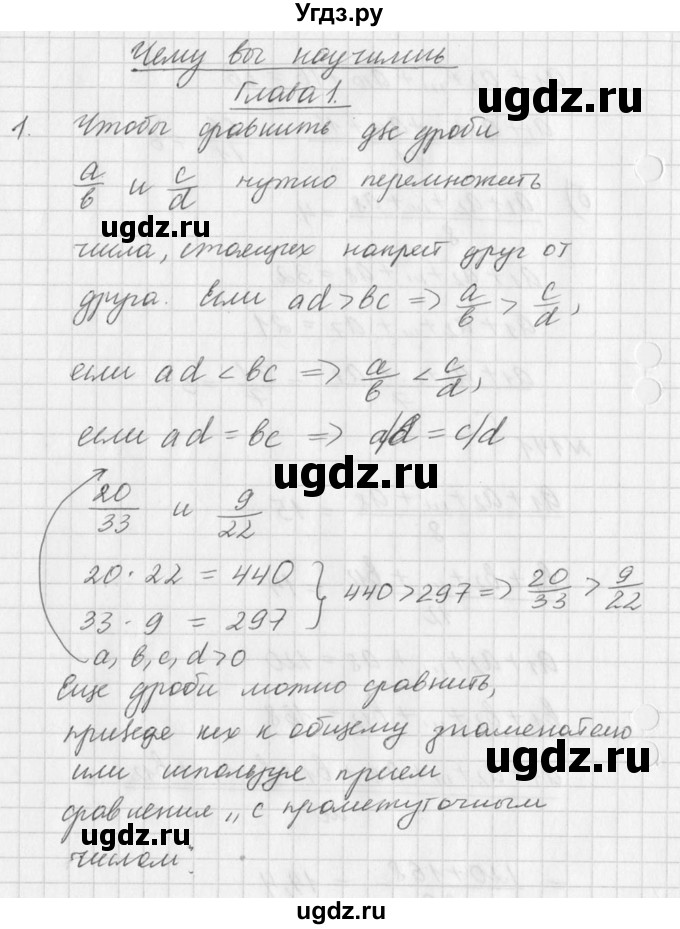 Угдз.ру
Чему вы научились
Глава 1.
1. Чтобы сравнить две дроби
a/b и c/d нужно перемножить
числа, стоящих напрот друг от
друга. Если ad > bc => a/b > c/d,
если ad < bc => a/b < c/d,
если ad = bc => a/b = c/d
20/33 и 9/22
20 · 22 = 440
33 · 9 = 297 } 440 > 297 => 20/33 > 9/22
a, b, c, d > 0
Еще дроби можно сравнить,
приведе их к общему знаменателю
или используе прием
сравнения „с промежуточным
числом"
ugdz.ru
ugdz.ru
ugdz.ru
ugdz.ru
ugdz.ru
ugdz.ru
ugdz.ru
ugdz.ru